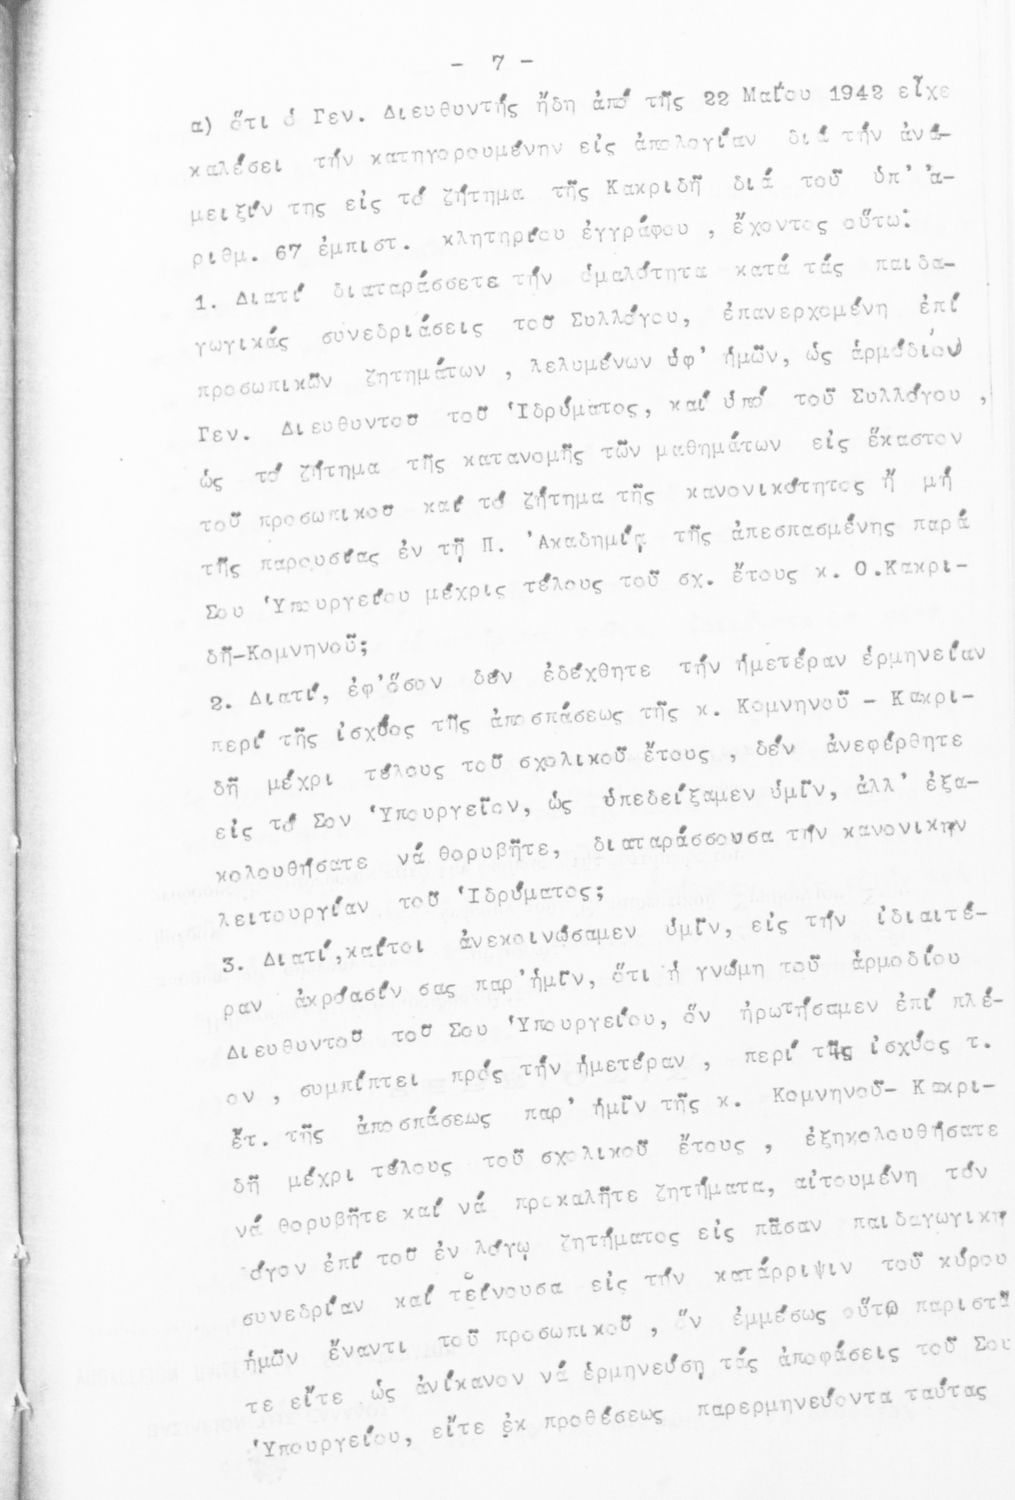 - 7 -
α) ὅτι ὁ Γεν. Διευθυντής ἤδη ἀπό τῆς 22 Μαΐου 1942 εἶχε
καλέσει τήν κατηγορουμένην εἰς ἀπολογίαν διά τήν ἀνά-
μειξίν της εἰς τό ζήτημα τῆς Κακριδῆ διά τοῦ ὑπ' ἀ-
ριθμ. 67 ἐμπιστ. κλητηρίου ἐγγράφου , ἔχοντος οὕτω:
1. Διατί διαταράσσετε τήν ὁμαλότητα κατά τάς παιδα-
γωγικάς συνεδριάσεις τοῦ Συλλόγου, ἐπανερχομένη ἐπί
προσωπικῶν ζητημάτων , λελυμένων ὑφ' ἡμῶν, ὡς ἁρμοδίου
Γεν. Διευθυντοῦ τοῦ Ἱδρύματος, καί ὑπό τοῦ Συλλόγου ,
ὡς τό ζήτημα τῆς κατανομῆς τῶν μαθημάτων εἰς ἕκαστον
τοῦ προσωπικοῦ καί τό ζήτημα τῆς κανονικότητος ἤ μή
τῆς παρουσίας ἐν τῇ Π. Ἀκαδημίᾳ τῆς ἀπεσπασμένης παρά
Σου Ὑπουργείου μέχρις τέλους τοῦ σχ. ἔτους κ. Ο.Κακρι-
δῆ-Κομνηνοῦ;
2. Διατί, ἐφ'ὅσον δέν ἐδέχθητε τήν ἡμετέραν ἑρμηνείαν
περί τῆς ἰσχύος τῆς ἀποσπάσεως τῆς κ. Κομνηνοῦ - Κακρι-
δῆ μέχρι τέλους τοῦ σχολικοῦ ἔτους , δέν ἀνεφέρθητε
εἰς τό Σον Ὑπουργεῖον, ὡς ὑπεδείξαμεν ὑμῖν, ἀλλ' ἐξα-
κολουθήσατε νά θορυβῆτε, διαταράσσουσα τήν κανονικήν
λειτουργίαν τοῦ Ἱδρύματος;
3. Διατί,καίτοι ἀνεκοινώσαμεν ὑμῖν, εἰς τήν ἰδιαιτέ-
ραν ἀκρόασίν σας παρ'ἡμῖν, ὅτι ἡ γνώμη τοῦ ἁρμοδίου
Διευθυντοῦ τοῦ Σου Ὑπουργείου, ὅν ἠρωτήσαμεν ἐπί πλέ-
ον , συμπίπτει πρός τήν ἡμετέραν , περί τῆς ἰσχύος τ.
ἔτ. τῆς ἀποσπάσεως παρ' ἡμῖν τῆς κ. Κομνηνοῦ- Κακρι-
δῆ μέχρι τέλους τοῦ σχολικοῦ ἔτους , ἐξηκολουθήσατε
νά θορυβῆτε καί νά προκαλῆτε ζητήματα, αἰτουμένη τόν
όγον ἐπί τοῦ ἐν λόγῳ ζητήματος εἰς πᾶσαν παιδαγωγικήν
συνεδρίαν καί τείνουσα εἰς τήν κατάρριψιν τοῦ κύρου
ἡμῶν ἔναντι τοῦ προσωπικοῦ , ὅν ἐμμέσως οὕτω παριστᾶ
τε εἴτε ὡς ἀνίκανον νά ἑρμηνεύσῃ τάς ἀποφάσεις τοῦ Σου
Ὑπουργείου, εἴτε ἐκ προθέσεως παρερμηνεύοντα ταύτας